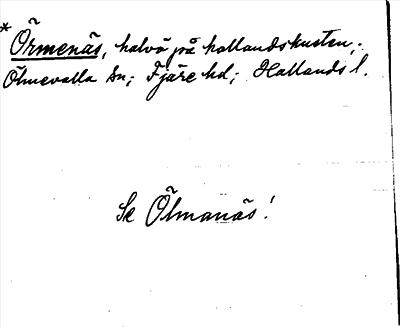 * Örmenäs, halvö på hallandskusten,
Ölmevalla sn; Fjäre hd; Hallands l.
Se Ölmanäs!